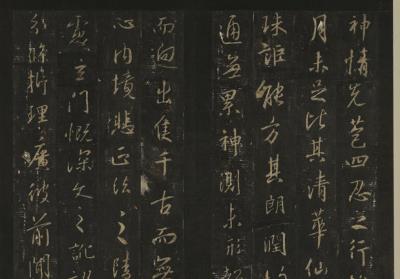 神情先苞四忍之行
月未足比其清華仙
珠詎能方其朗潤
通無累神測未形
而迥出隻千古而無
心內境悲正法之陵
慮玄門慨深文之訛
欲分條析理廣彼前聞